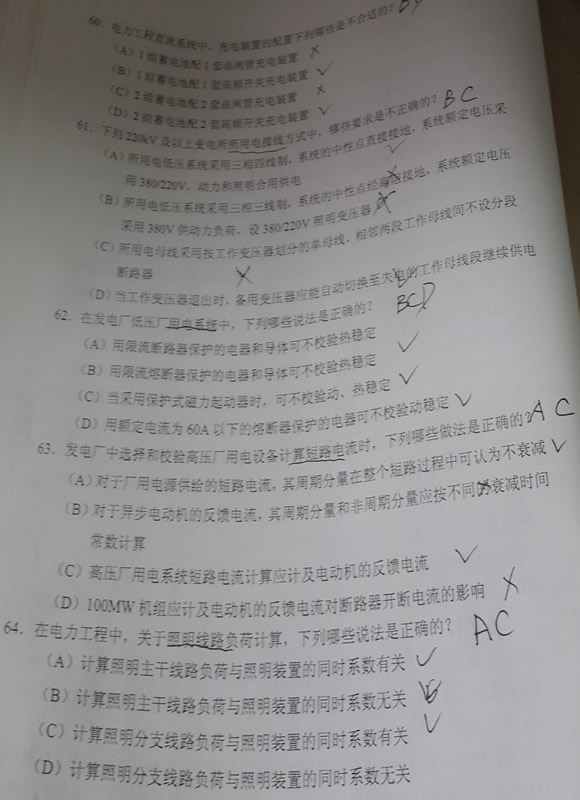 60. 电力工程直流系统中，充电装置的配置下列哪些是不合适的？
(A) 1组蓄电池配1套晶闸管充电装置 ×
(B) 1组蓄电池配1套高频开关充电装置 √
(C) 2组蓄电池配2套晶闸管充电装置 ×
(D) 2组蓄电池配2套高频开关充电装置 √
61. 下列220kV及以上变电所所用电接线方式中，哪些要求是不正确的？ BC
(A) 所用电低压系统采用三相四线制，系统的中性点直接接地，系统额定电压采 √
用380/220V，动力和照明合用供电
(B) 所用电低压系统采用三相三线制，系统的中性点经高阻接地，系统额定电压
采用380V供动力负荷，设380/220V照明变压器 ×
(C) 所用电母线采用按工作变压器划分的单母线，相邻两段工作母线间不设分段
断路器 ×
(D) 当工作变压器退出时，备用变压器应能自动切换至失电的工作母线段继续供电
62. 在发电厂低压厂用电系统中，下列哪些说法是正确的？ BCD
(A) 用限流断路器保护的电器和导体可不校验热稳定
(B) 用限流熔断器保护的电器和导体可不校验热稳定 √
(C) 当采用保护式磁力起动器时，可不校验动、热稳定 √
(D) 用额定电流为60A以下的熔断器保护的电器可不校验动稳定 √
63. 发电厂中选择和校验高压厂用电设备计算短路电流时，下列哪些做法是正确的？ AC
(A) 对于厂用电源供给的短路电流，其周期分量在整个短路过程中可认为不衰减 √
(B) 对于异步电动机的反馈电流，其周期分量和非周期分量应按不同的衰减时间
常数计算
(C) 高压厂用电系统短路电流计算应计及电动机的反馈电流 √
(D) 100MW机组应计及电动机的反馈电流对断路器开断电流的影响 ×
64. 在电力工程中，关于照明线路负荷计算，下列哪些说法是正确的？ AC
(A) 计算照明主干线路负荷与照明装置的同时系数有关 √
(B) 计算照明主干线路负荷与照明装置的同时系数无关
(C) 计算照明分支线路负荷与照明装置的同时系数有关 √
(D) 计算照明分支线路负荷与照明装置的同时系数无关